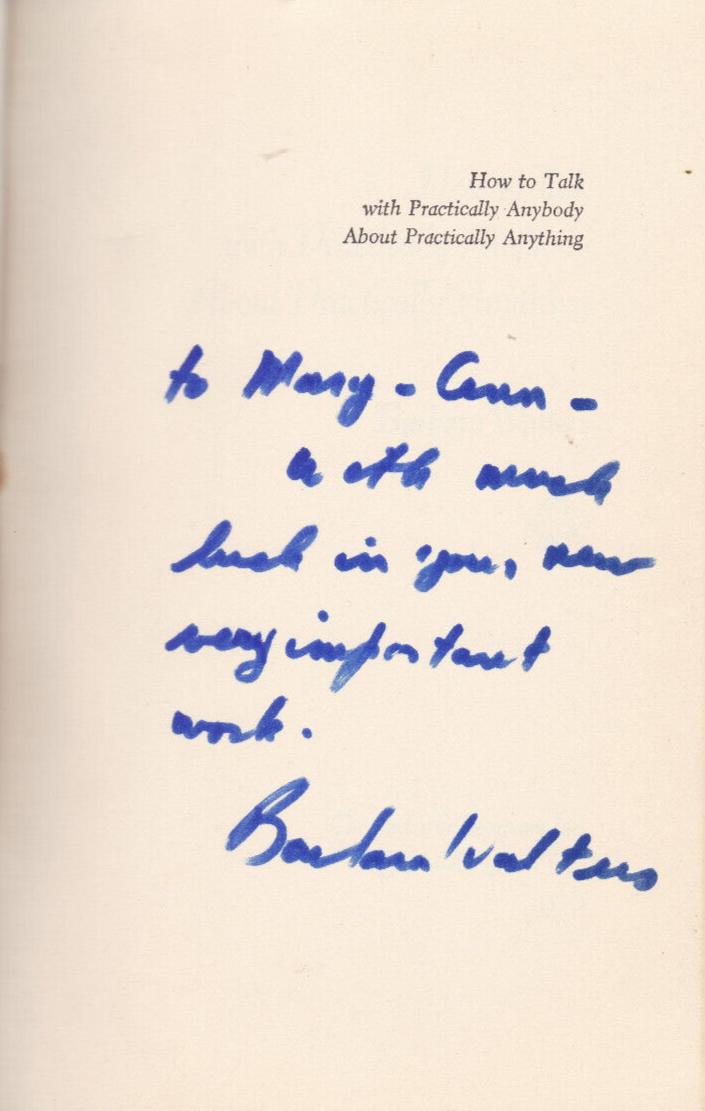 How to Talk
with Practically Anybody
About Practically Anything
to Mary-Ann -
with much
luck in your new
very important
work.
Barbara Walters